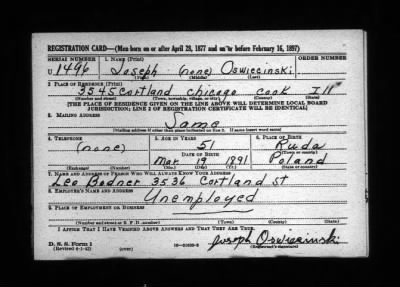 REGISTRATION CARD—(Men born on or after April 28, 1877 and on or before February 16, 1897)
SERIAL NUMBER 1. NAME (Print) ORDER NUMBER
U 1496 Joseph (none) Oswiecinski
(First) (Middle) (Last)
2. PLACE OF RESIDENCE (Print)
3545 Cortland chicago cook Ill
(Number and street) (Town, township, village, or city) (County) (State)
[THE PLACE OF RESIDENCE GIVEN ON THE LINE ABOVE WILL DETERMINE LOCAL BOARD
JURISDICTION; LINE 2 OF REGISTRATION CERTIFICATE WILL BE IDENTICAL]
3. MAILING ADDRESS
Same
[Mailing address if other than place indicated on line 2. If same insert word same]
4. TELEPHONE 5. AGE IN YEARS 6. PLACE OF BIRTH
(none) 51 Ruda
DATE OF BIRTH (Town or county)
Mar 19 1891 Poland
(Exchange) (Number) (Mo.) (Day) (Yr.) (State or country)
7. NAME AND ADDRESS OF PERSON WHO WILL ALWAYS KNOW YOUR ADDRESS
Leo Bodner 3536 Cortland St
8. EMPLOYER'S NAME AND ADDRESS
Unemployed
9. PLACE OF EMPLOYMENT OR BUSINESS
(Number and street or R. F. D. number) (Town) (County) (State)
I AFFIRM THAT I HAVE VERIFIED ABOVE ANSWERS AND THAT THEY ARE TRUE.
D. S. S. Form 1 Joseph Oswiecinski
(Revised 4-1-42) (over) (Registrant's signature)